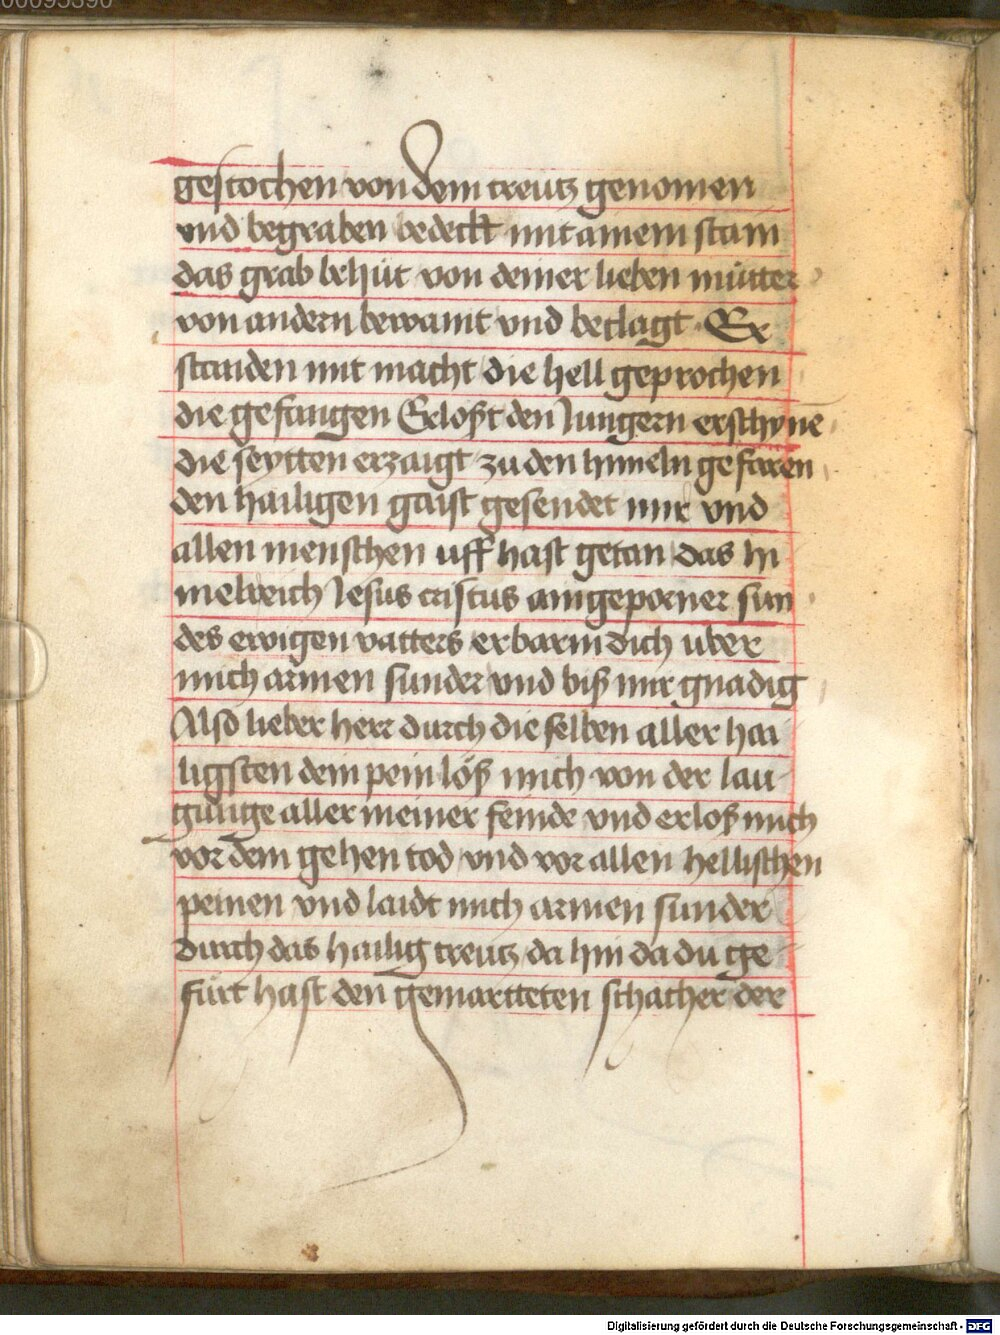 00095390
gestochen von dem creutz genomen
vnd begraben bedeckt mit ainem stain
das grab behüt von deiner lieben mütter
von andern bewaint vnd beclagt Er
standen mit macht die hell geprochen
die gefangen Erloßt den Jungern erschyne
die seytten erzaigt zu den himeln gefaren
den hailigen gaist gesendet mir vnd
allen menschen uff hast getan das hi
melreich Jesus cristus aingeporner sun
des ewigen vatters erbarm dich uber
mich armen sunder vnd biß mir gnadig
Also lieber herr durch die selben aller hai
ligsten dein pein löß mich von der lau
gnunge aller meiner feinde vnd erloß mich
vor dem gehen tod vnd vor allen hellischen
peinen vnd laidt mich armen sunder
durch das hailig creutz da hin da du ge
fürt hast den gemartteten schacher der
Digitalisierung gefördert durch die Deutsche Forschungsgemeinschaft - DFG